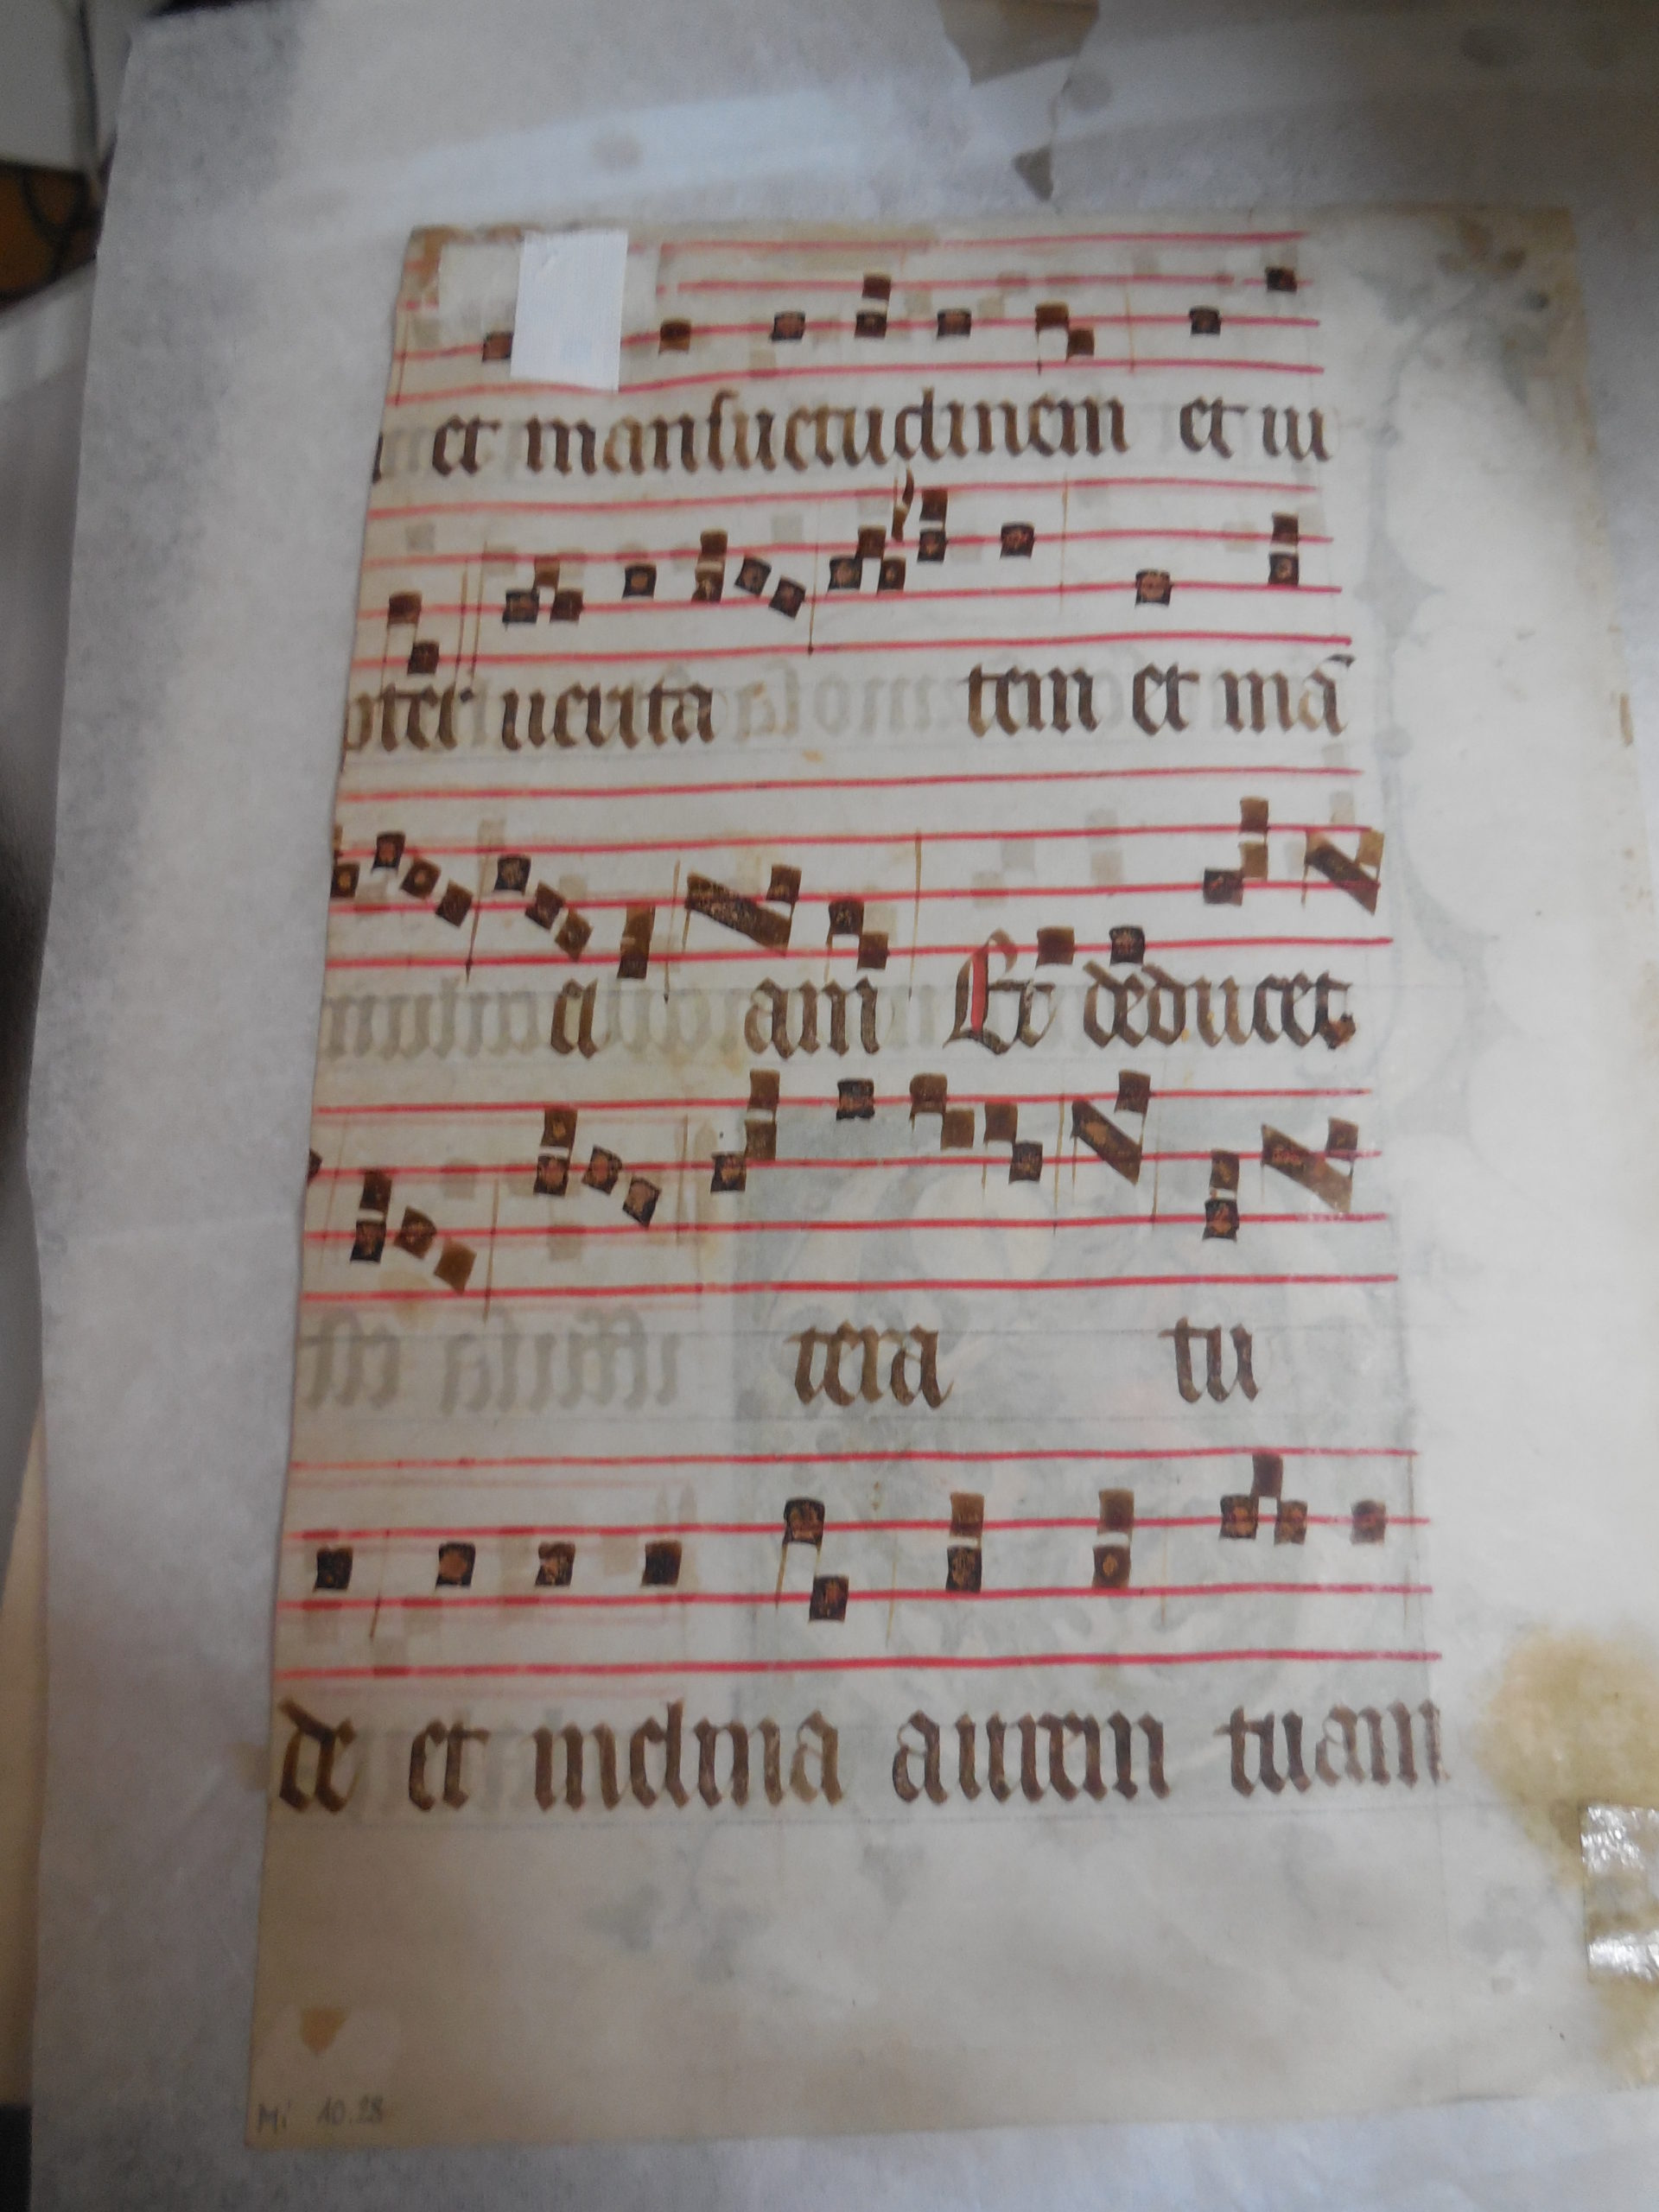 et mansuetudinem et iu
pter uerita tem et mā
ci am Et deducet
tera tu
de et inclina aurem tuam
Mi 10.28